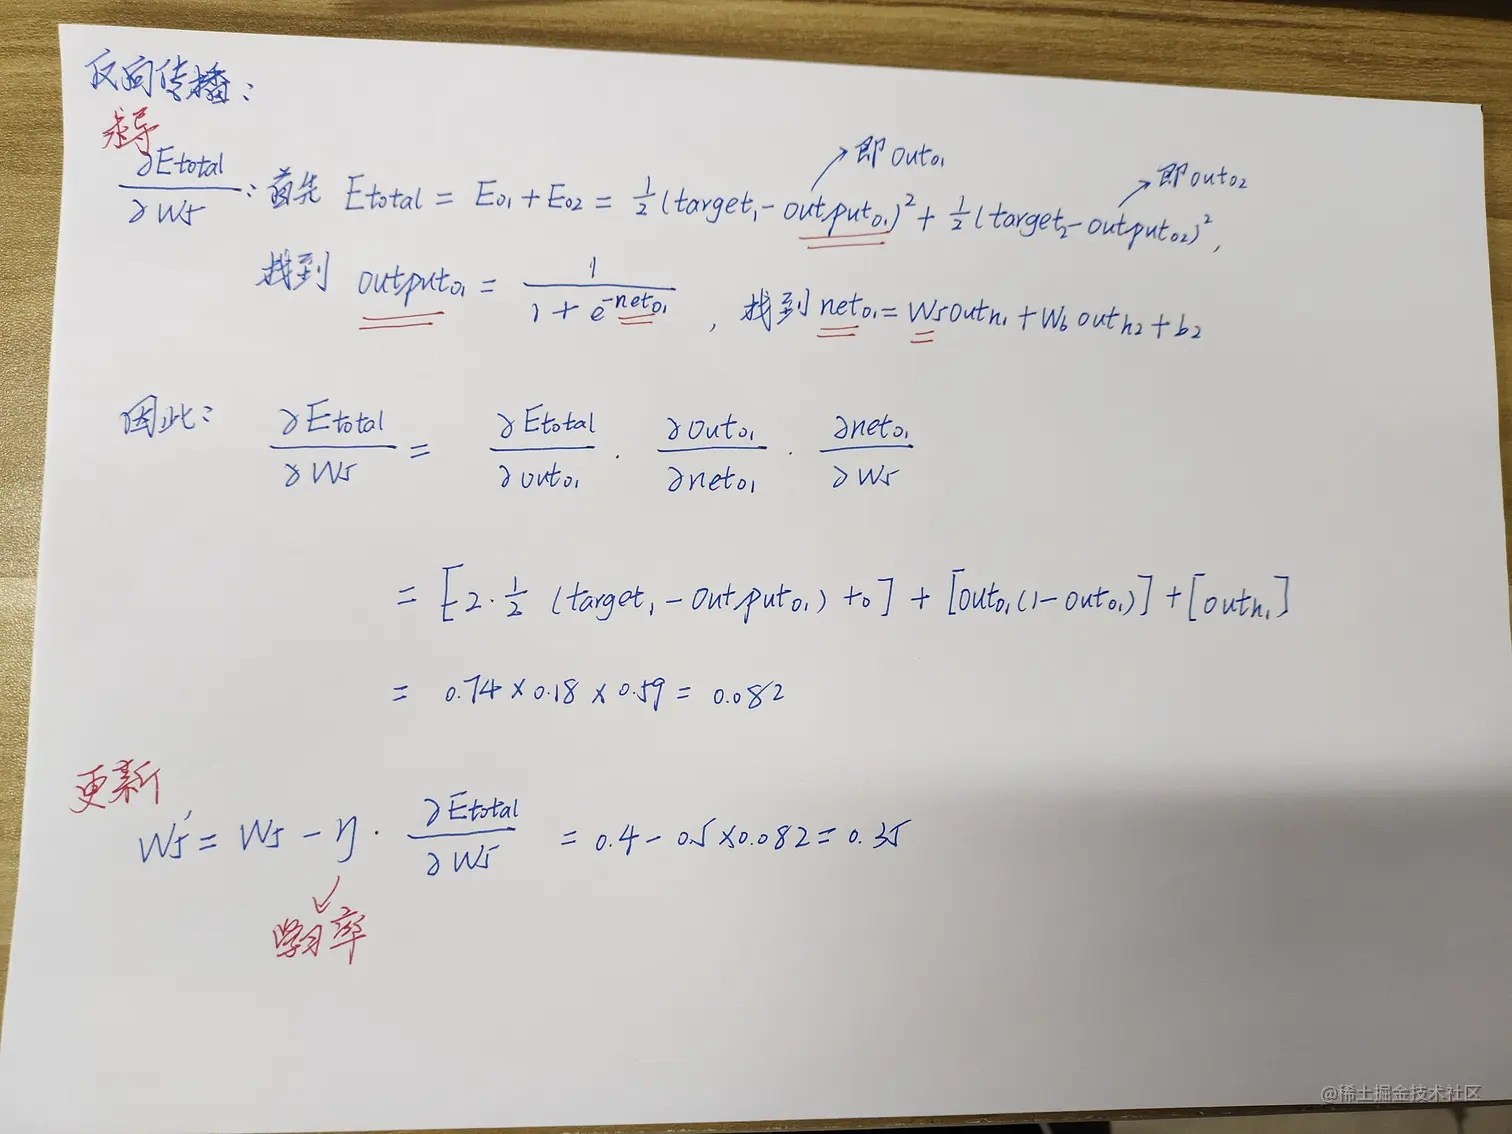 反向传播:
求导
∂Etotal/∂W5 : 首先 Etotal = Eo1 + Eo2 = 1/2(target1 - outputo1)² + 1/2(target2 - outputo2)²,
→即outo1
→即outo2
找到 outputo1 = 1/(1 + e^-neto1) , 找到 neto1 = W5outh1 + W6 outh2 + b2
因此: ∂Etotal/∂W5 = ∂Etotal/∂outo1 · ∂outo1/∂neto1 · ∂neto1/∂W5
= [2·1/2 (target1 - outputo1) +0] + [outo1(1-outo1)] + [outh1]
= 0.74 × 0.18 × 0.59 = 0.082
更新
W5' = W5 - η · ∂Etotal/∂W5 = 0.4 - 0.5 × 0.082 = 0.35
学习率
@稀土掘金技术社区